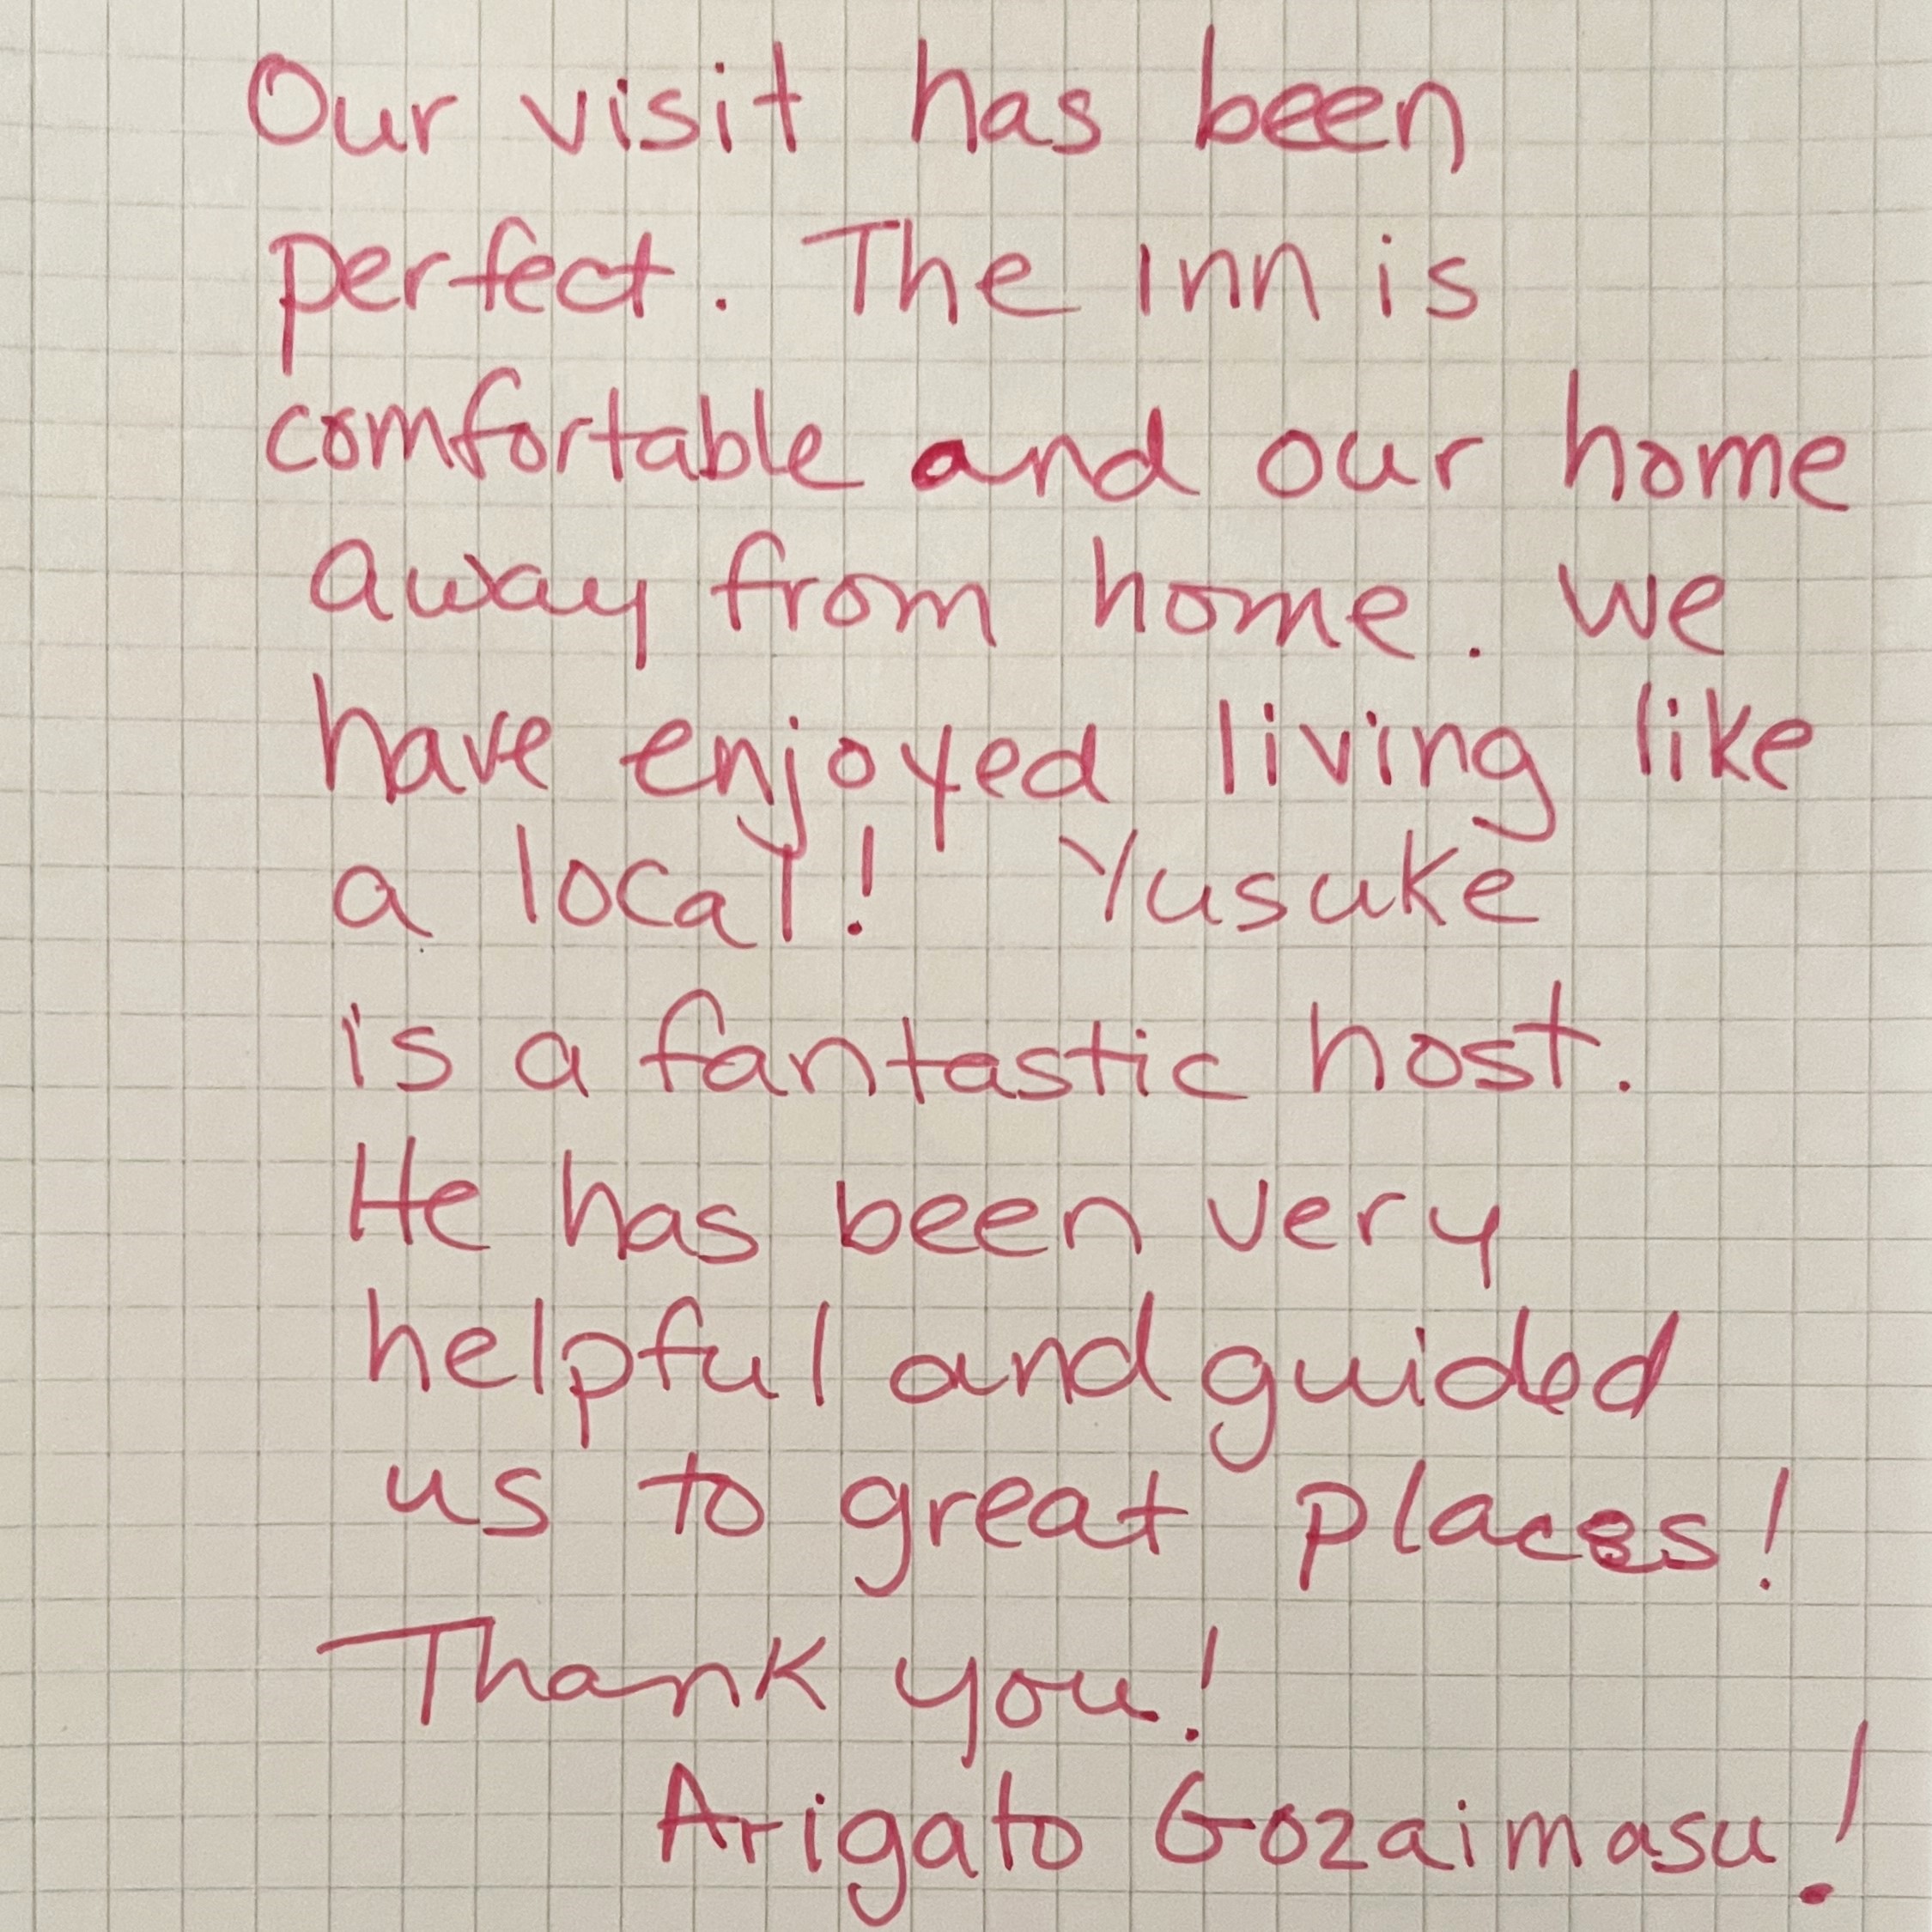 Our visit has been
perfect. The inn is
comfortable and our home
away from home. We
have enjoyed living like
a local! Yusuke
is a fantastic host.
He has been very
helpful and guided
us to great places!
Thank you!
Arigato Gozaimasu!